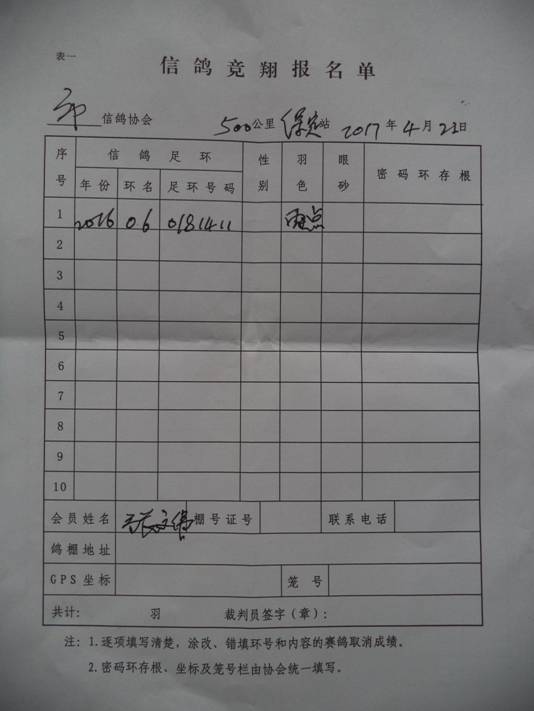 表一
信鸽竞翔报名单
市 信鸽协会 500公里 保定站 2017年4月23日
序号 信鸽足环 性别 羽色 眼砂 密码环存根
年份 环名 足环号码
1 2016 06 0181411 雨点
2
3
4
5
6
7
8
9
10
会员姓名 棚号证号 联系电话
鸽棚地址
GPS坐标 笼号
共计: 羽 裁判员签字(章):
注: 1.逐项填写清楚,涂改、错填环号和内容的赛鸽取消成绩。
2.密码环存根、坐标及笼号栏由协会统一填写。